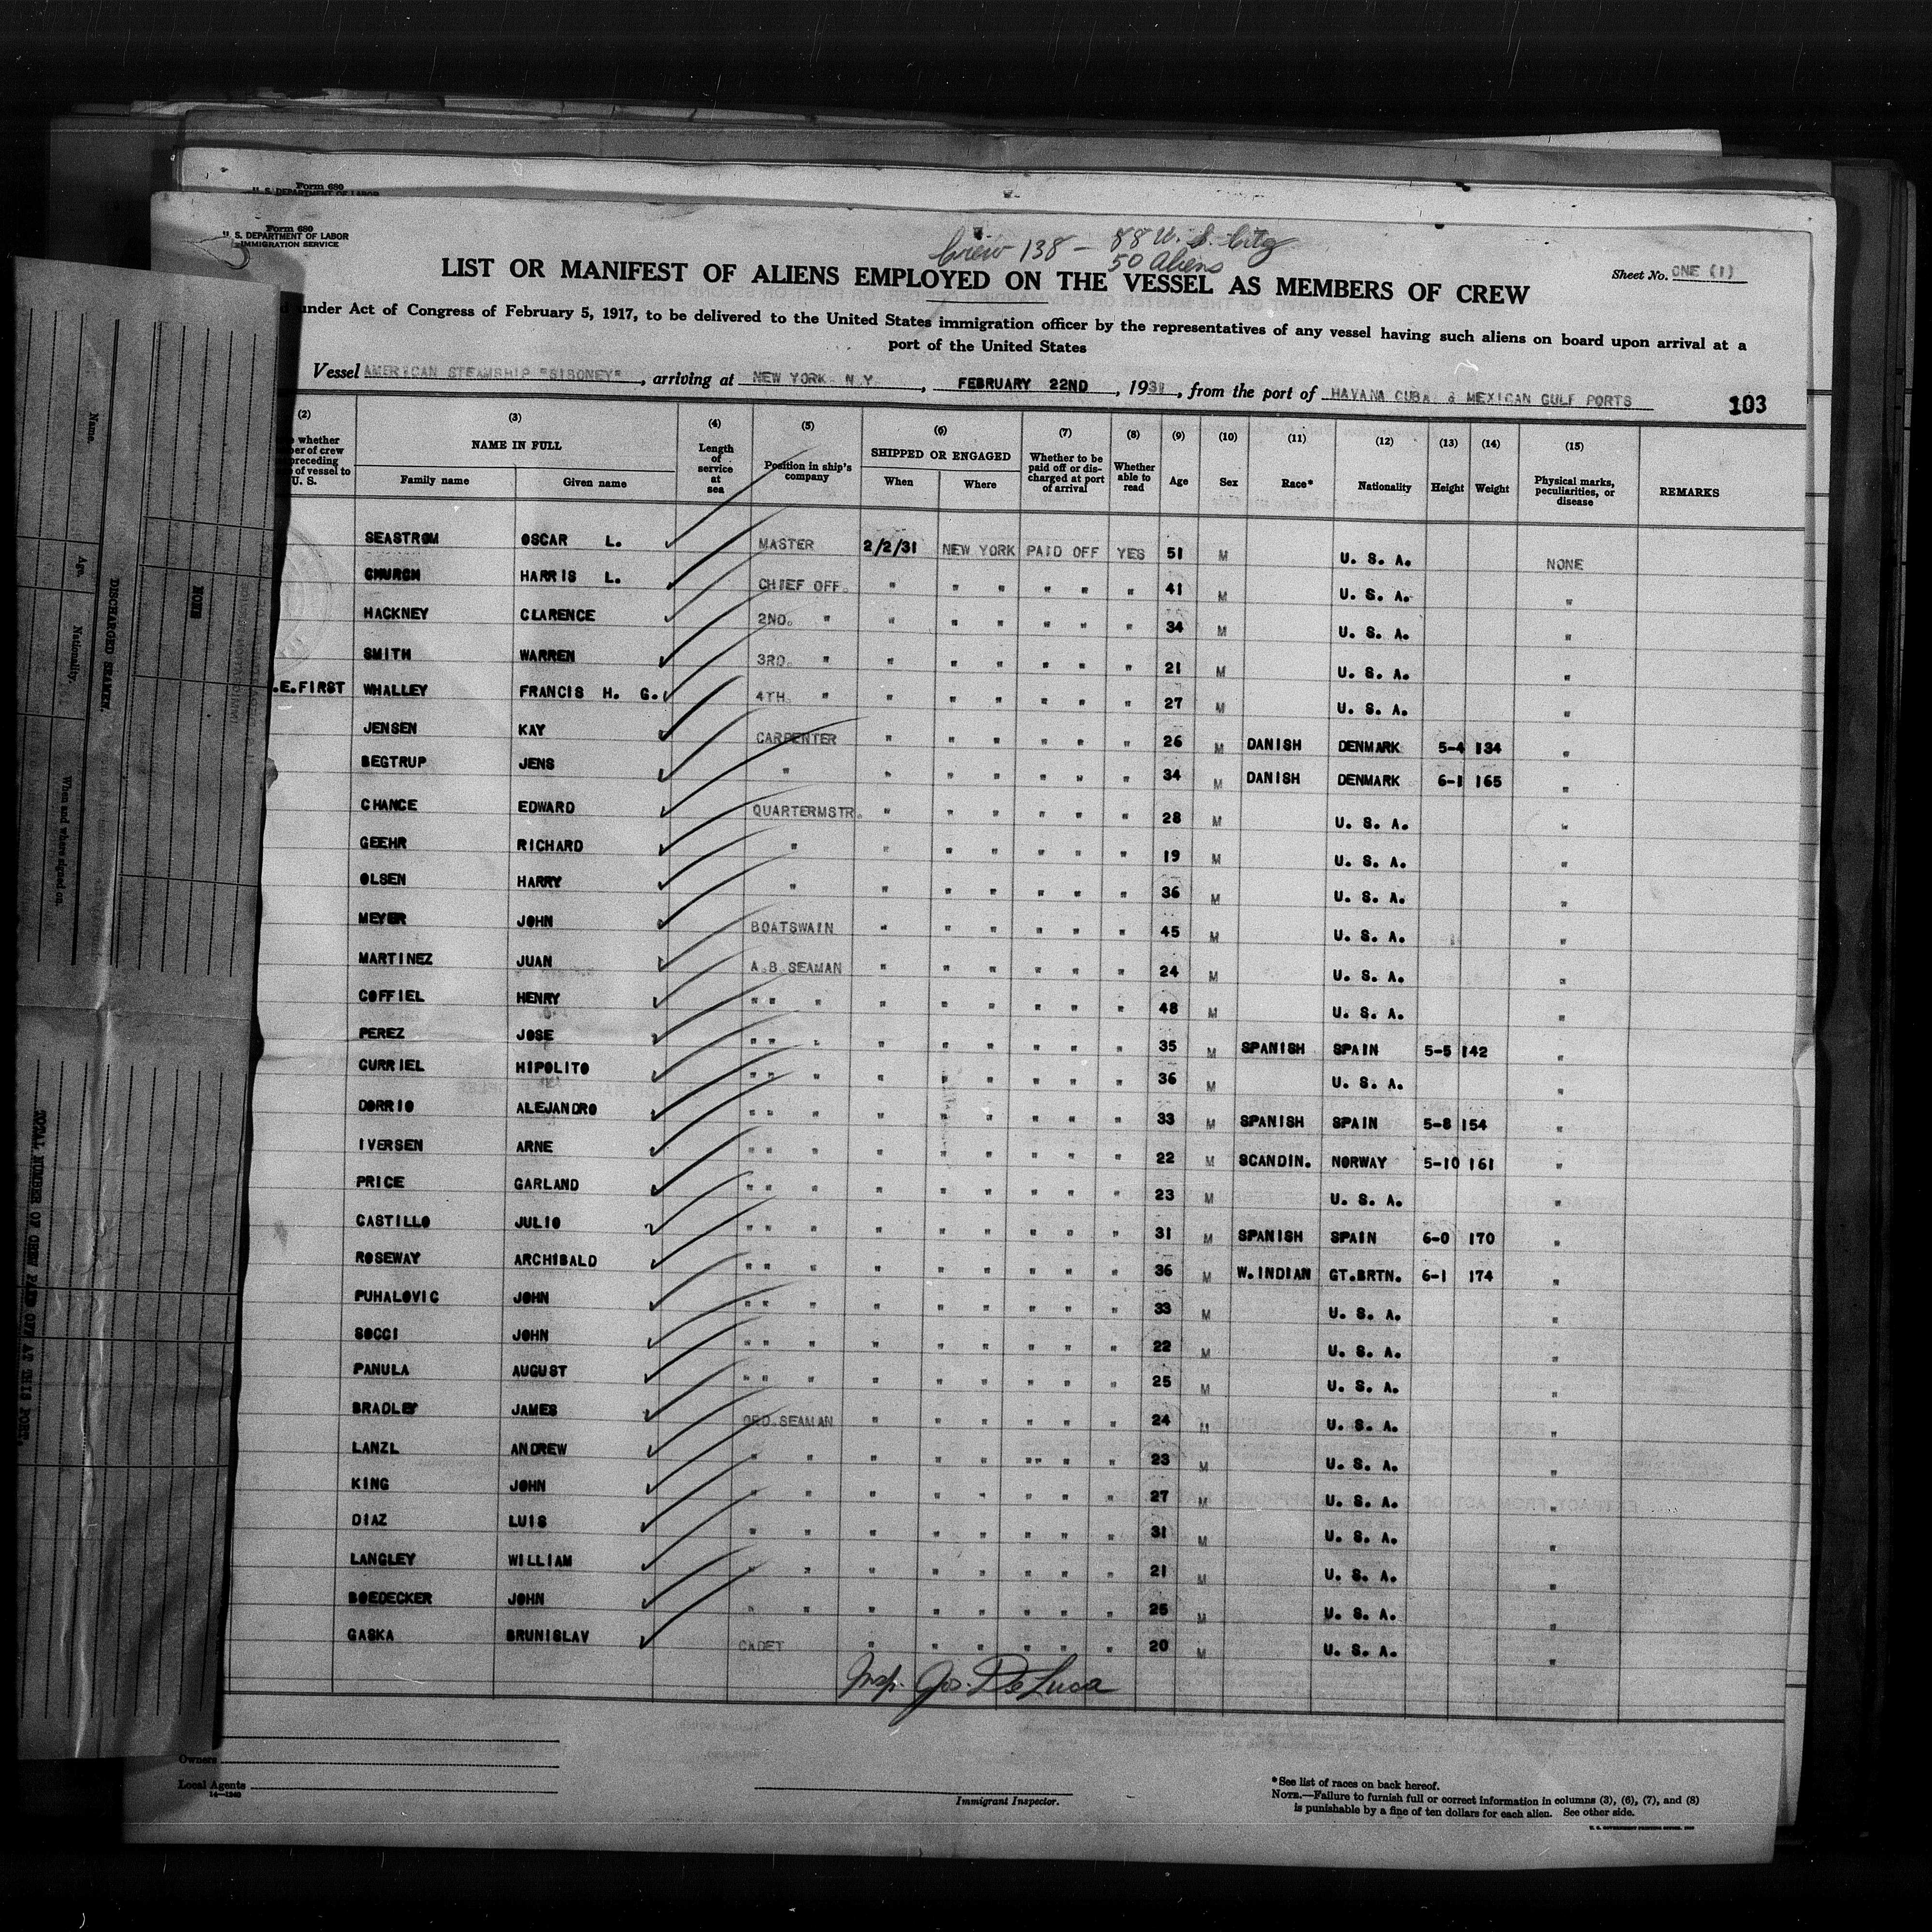 Form 680
U. S. DEPARTMENT OF LABOR
Form 680
U. S. DEPARTMENT OF LABOR
IMMIGRATION SERVICE
Crew 138 - 88 U. S. Citz
50 Aliens
LIST OR MANIFEST OF ALIENS EMPLOYED ON THE VESSEL AS MEMBERS OF CREW
Sheet No. ONE (1)
under Act of Congress of February 5, 1917, to be delivered to the United States immigration officer by the representatives of any vessel having such aliens on board upon arrival at a
port of the United States
Vessel AMERICAN STEAMSHIP "SIBONEY", arriving at NEW YORK N.Y., FEBRUARY 22ND, 1931, from the port of HAVANA CUBA & MEXICAN GULF PORTS
103
(2) (3) (4) (5) (6) (7) (8) (9) (10) (11) (12) (13) (14) (15)
whether of crew preceding of vessel to U. S. NAME IN FULL Family name Given name Length of service at sea Position in ship's company SHIPPED OR ENGAGED When Where Whether to be paid off or discharged at port of arrival Whether able to read Age Sex Race* Nationality Height Weight Physical marks, peculiarities, or disease REMARKS
SEASTROM OSCAR L. MASTER 2/2/31 NEW YORK PAID OFF YES 51 M U. S. A. NONE
CHURCH HARRIS L. CHIEF OFF. " " " " " " 41 M U. S. A. "
HACKNEY CLARENCE 2ND. " " " " " " " 34 M U. S. A. "
SMITH WARREN 3RD. " " " " " " " 21 M U. S. A. "
.E.FIRST WHALLEY FRANCIS H. G. 4TH. " " " " " " " 27 M U. S. A. "
JENSEN KAY CARPENTER " " " " " " 26 M DANISH DENMARK 5-4 134 "
BEGTRUP JENS " " " " " " " 34 M DANISH DENMARK 6-1 165 "
CHANCE EDWARD QUARTERMSTR. " " " " " " 28 M U. S. A. "
GEEHR RICHARD " " " " " " " 19 M U. S. A. "
OLSEN HARRY " " " " " " " 36 M U. S. A. "
MEYER JOHN BOATSWAIN " " " " " " 45 M U. S. A. "
MARTINEZ JUAN A.B.SEAMAN " " " " " " 24 M U. S. A. "
COFFIEL HENRY " " " " " " " " " 48 M U. S. A. "
PEREZ JOSE " " " " " " " " " 35 M SPANISH SPAIN 5-5 142 "
CURRIEL HIPOLITO " " " " " " " " " 36 M U. S. A. "
DORRIO ALEJANDRO " " " " " " " " " 33 M SPANISH SPAIN 5-8 154 "
IVERSEN ARNE " " " " " " " " " 22 M SCANDIN. NORWAY 5-10 161 "
PRICE GARLAND " " " " " " " " " 23 M U. S. A. "
CASTILLO JULIO " " " " " " " " " 31 M SPANISH SPAIN 6-0 170 "
ROSEWAY ARCHIBALD " " " " " " " " " 36 M W.INDIAN GT.BRTN. 6-1 174 "
PUHALOVIC JOHN " " " " " " " " " 33 M U. S. A. "
SOCCI JOHN " " " " " " " " " 22 M U. S. A. "
PANULA AUGUST " " " " " " " " " 25 M U. S. A. "
BRADLEY JAMES ORD.SEAMAN " " " " " " 24 M U. S. A. "
LANZL ANDREW " " " " " " " " 23 M U. S. A. "
KING JOHN " " " " " " " " 27 M U. S. A. "
DIAZ LUIS " " " " " " " " 31 M U. S. A. "
LANGLEY WILLIAM " " " " " " " " 21 M U. S. A. "
BOEDECKER JOHN " " " " " " " " 25 M U. S. A. "
GASKA BRUNISLAV CADET " " " " " " 20 M U. S. A. "
Insp. Jos. De Luca
Owners
Local Agents
14-1240
Immigrant Inspector.
*See list of races on back hereof.
NOTE.—Failure to furnish full or correct information in columns (3), (6), (7), and (8)
is punishable by a fine of ten dollars for each alien. See other side.
U. S. GOVERNMENT PRINTING OFFICE
Name.
Age.
Nationality.
When and where signed on.
DISCHARGED SEAMEN.
NONE
TOTAL NUMBER OF CREW PAID OFF AT THIS PORT.